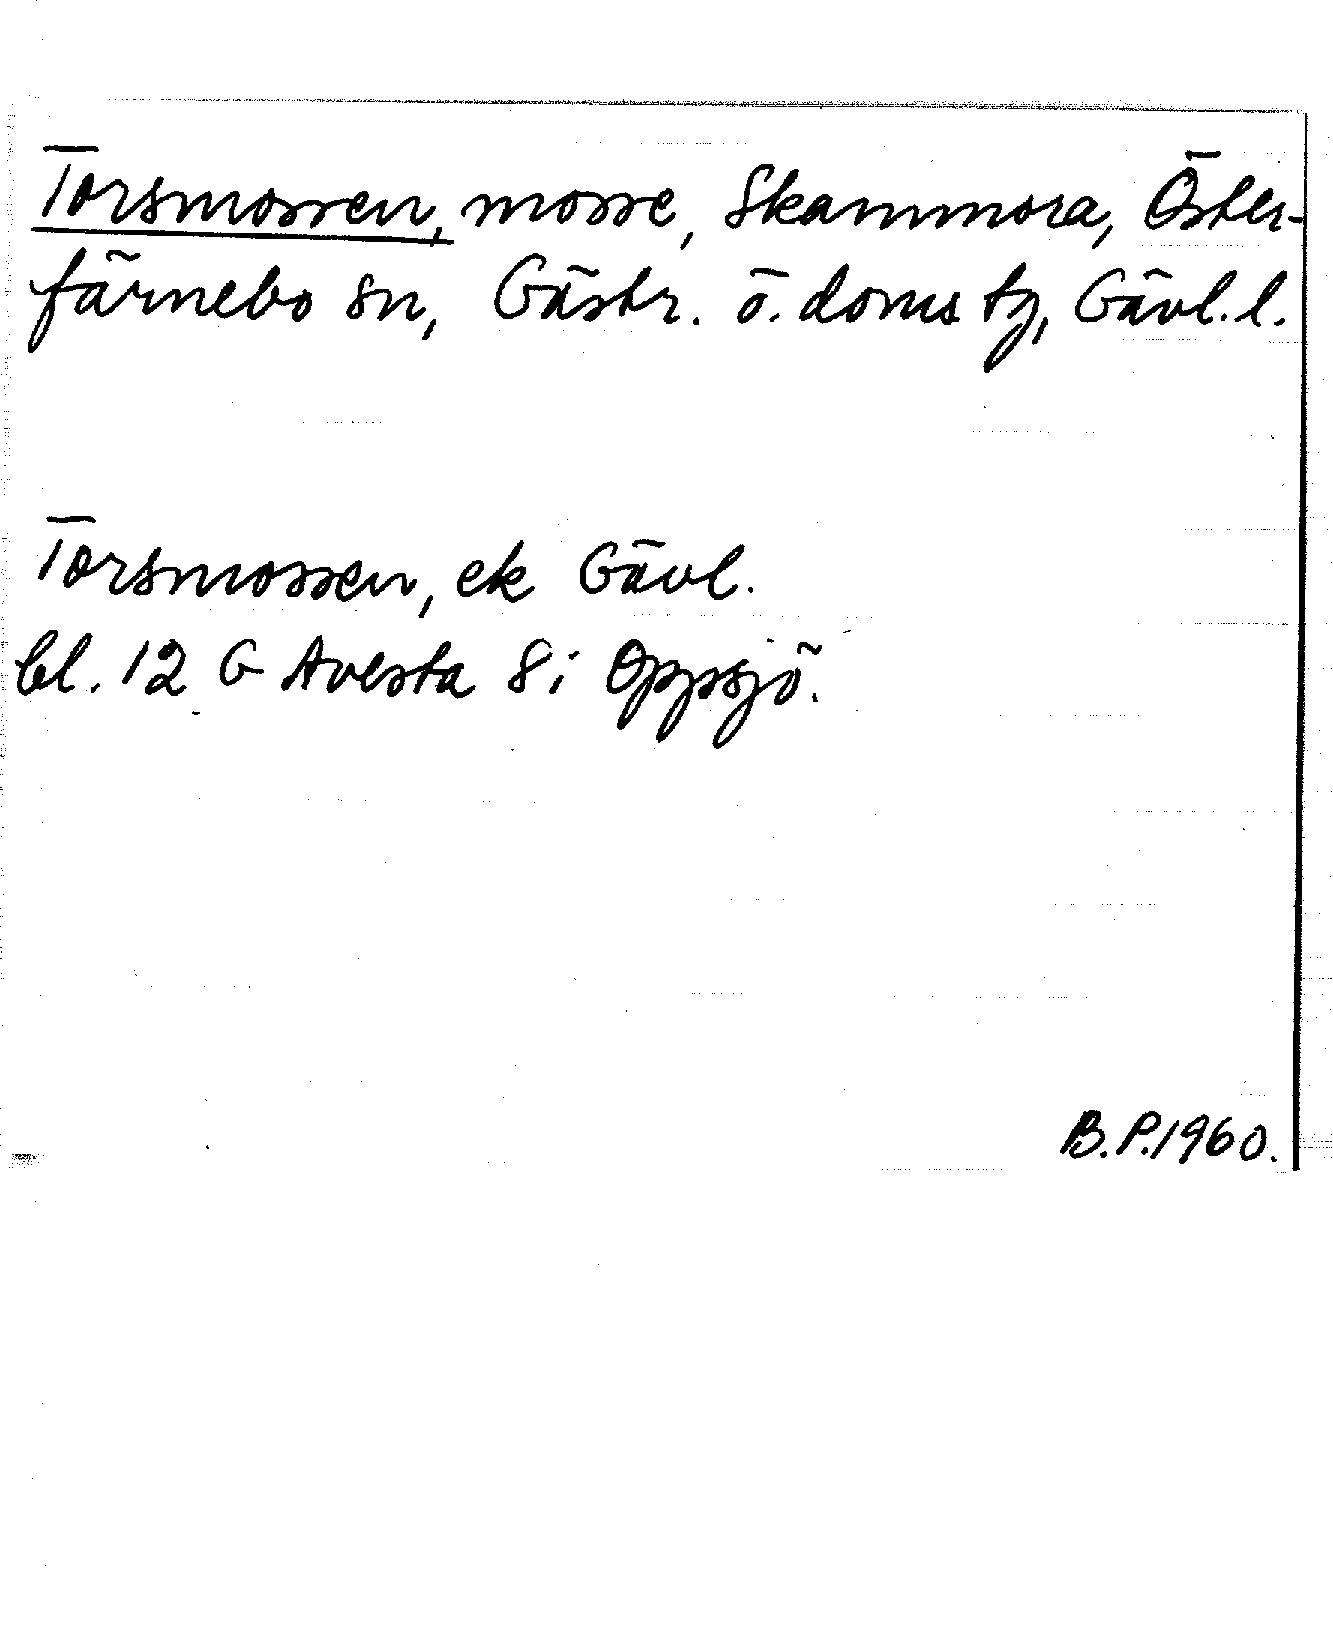 Torsmossen, mosse, Skammora, Öster-
färnebo sn, Gästr. ö. doms tg, Gävl. l.
Torsmossen, ek Gävl.
bl. 12 G Avesta 8i Oppsjö.
B.P.1960.